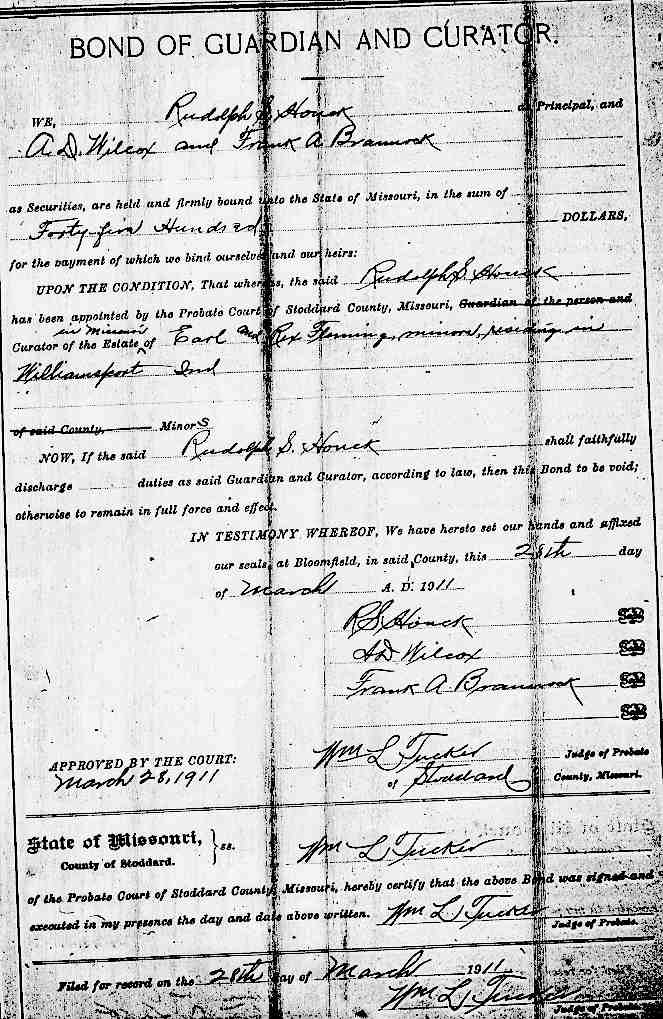 BOND OF GUARDIAN AND CURATOR.
WE, Rudolph S. Houck as Principal, and
A. D. Wilcox and Frank A Brannock
as Securities, are held and firmly bound unto the State of Missouri, in the sum of
Forty five Hundred DOLLARS,
for the payment of which we bind ourselves and our heirs:
UPON THE CONDITION, That whereas, the said Rudolph S. Houck
has been appointed by the Probate Court of Stoddard County, Missouri, Guardian of the person and
in Missouri
Curator of the Estate ^ of Earl and Rex Fleming, minors, residing in
Williamsport Ind
of said County, Minors
NOW, If the said Rudolph S. Houck shall faithfully
discharge duties as said Guardian and Curator, according to law, then this Bond to be void;
otherwise to remain in full force and effect.
IN TESTIMONY WHEREOF, We have hereto set our hands and affixed
our seals, at Bloomfield, in said County, this 28th day
of March A. D. 1911
R S Houck
A D Wilcox
Frank A. Brannock
APPROVED BY THE COURT:
March 28, 1911
Wm L Tucker Judge of Probate
of Stoddard County, Missouri.
State of Missouri, } ss.
County of Stoddard.
Wm L Tucker
of the Probate Court of Stoddard County, Missouri, hereby certify that the above Bond was signed and
executed in my presence the day and date above written. Wm L Tucker
Judge of Probate.
Filed for record on the 28th day of March 1911
Wm L Tucker
Judge of Probate.